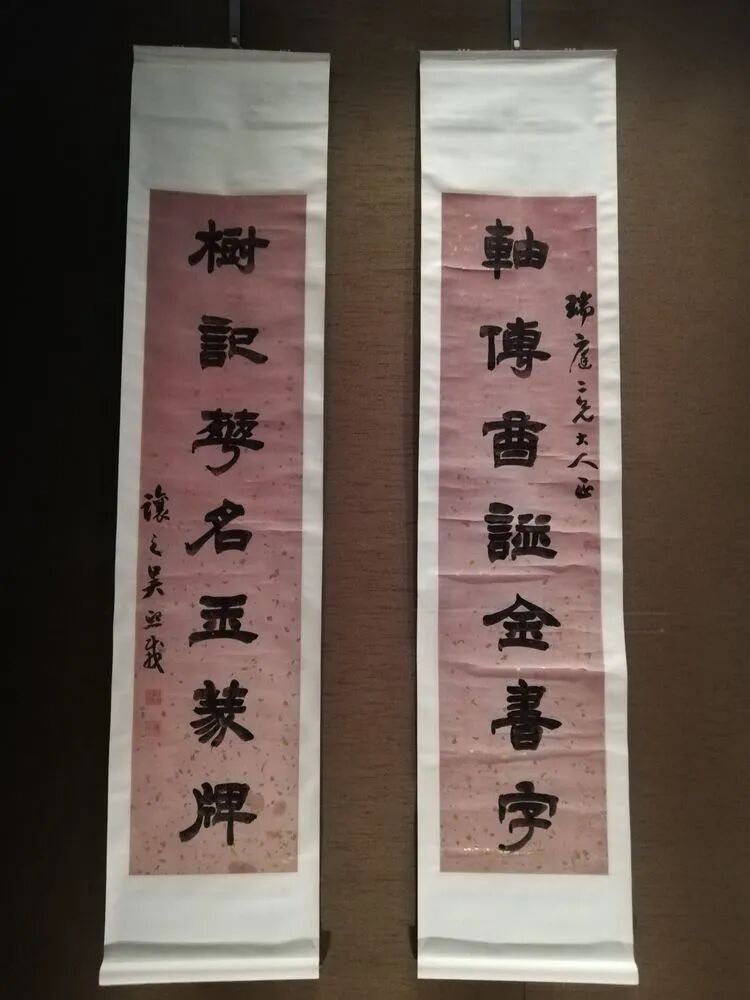 軸傳酋謚金書字
瑞庭二兄大人正
樹記華名玉篆牌
讓之吳熙載